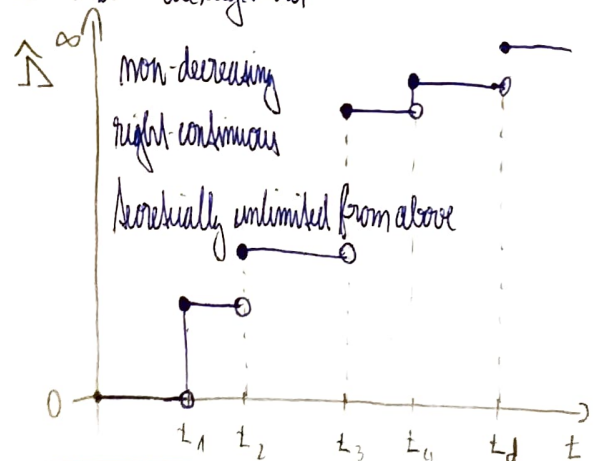 ∞
Λ̂
non-decreasing
right-continuous
teoretically unlimited from above
0
t₁ t₂ t₃ t₄ t_d t